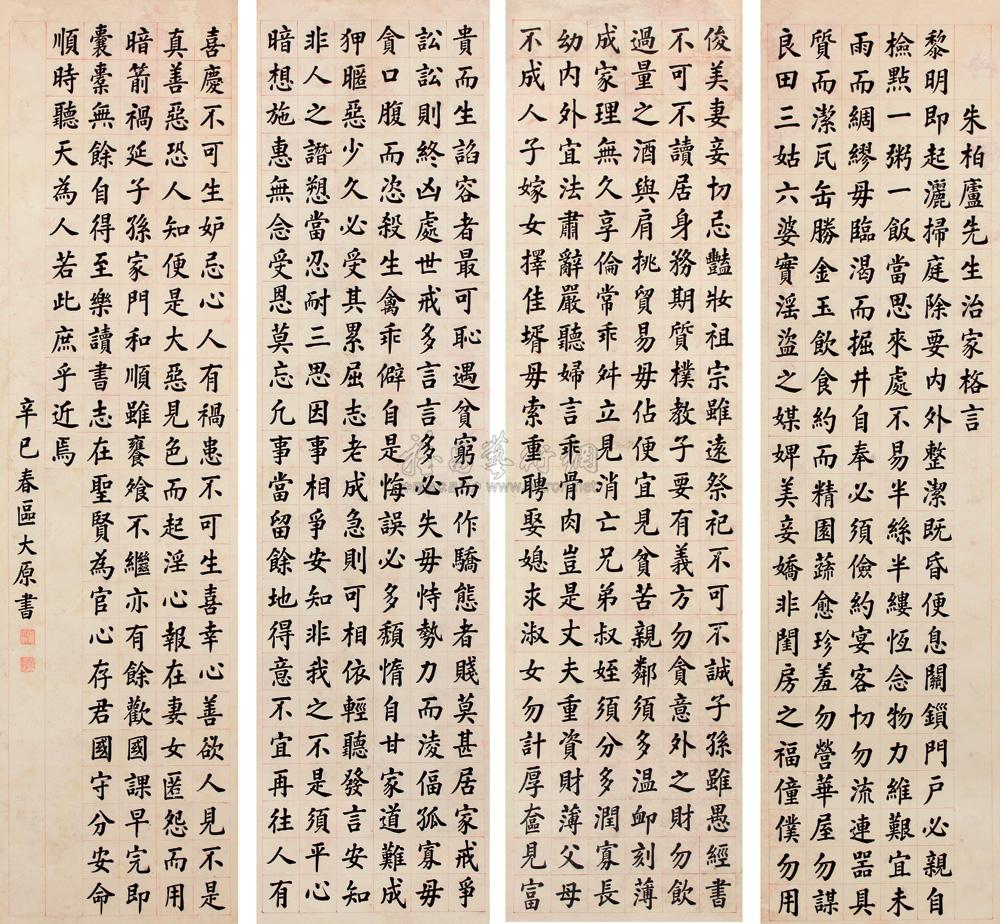 朱柏廬先生治家格言
黎明即起灑掃庭除要內外整潔既昏便息關鎖門戶必親自
檢點一粥一飯當思來處不易半絲半縷恆念物力維艱宜未
雨而綢繆毋臨渴而掘井自奉必須儉約宴客切勿流連器具
質而潔瓦缶勝金玉飲食約而精園蔬愈珍羞勿營華屋勿謀
良田三姑六婆實淫盜之媒婢美妾嬌非閨房之福僮僕勿用
俊美妻妾切忌豔妝祖宗雖遠祭祀不可不誠子孫雖愚經書
不可不讀居身務期質樸教子要有義方勿貪意外之財勿飲
過量之酒與肩挑貿易毋佔便宜見貧苦親鄰須多温卹刻薄
成家理無久享倫常乖舛立見消亡兄弟叔姪須分多潤寡長
幼內外宜法肅辭嚴聽婦言乖骨肉豈是丈夫重資財薄父母
不成人子嫁女擇佳壻毋索重聘娶媳求淑女勿計厚奩見富
貴而生諂容者最可恥遇貧窮而作驕態者賤莫甚居家戒爭
訟訟則終凶處世戒多言言多必失毋恃勢力而淩偪孤寡毋
貪口腹而恣殺生禽乖僻自是悔誤必多頹惰自甘家道難成
狎暱惡少久必受其累屈志老成急則可相依輕聽發言安知
非人之譖愬當忍耐三思因事相爭安知非我之不是須平心
暗想施惠無念受恩莫忘凡事當留餘地得意不宜再往人有
喜慶不可生妒忌心人有禍患不可生喜幸心善欲人見不是
真善惡恐人知便是大惡見色而起淫心報在妻女匿怨而用
暗箭禍延子孫家門和順雖饔飧不繼亦有餘歡國課早完即
囊橐無餘自得至樂讀書志在聖賢為官心存君國守分安命
順時聽天為人若此庶乎近焉
辛巳春區大原書